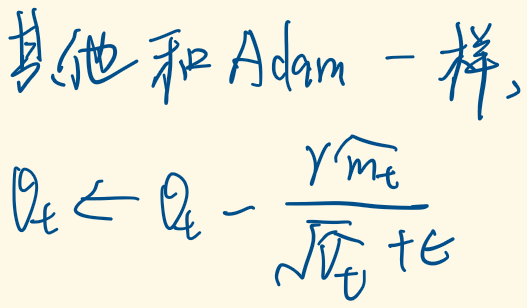 其他和Adam一样,
θₜ ← θₜ - γm̂ₜ / (√v̂ₜ + ϵ)